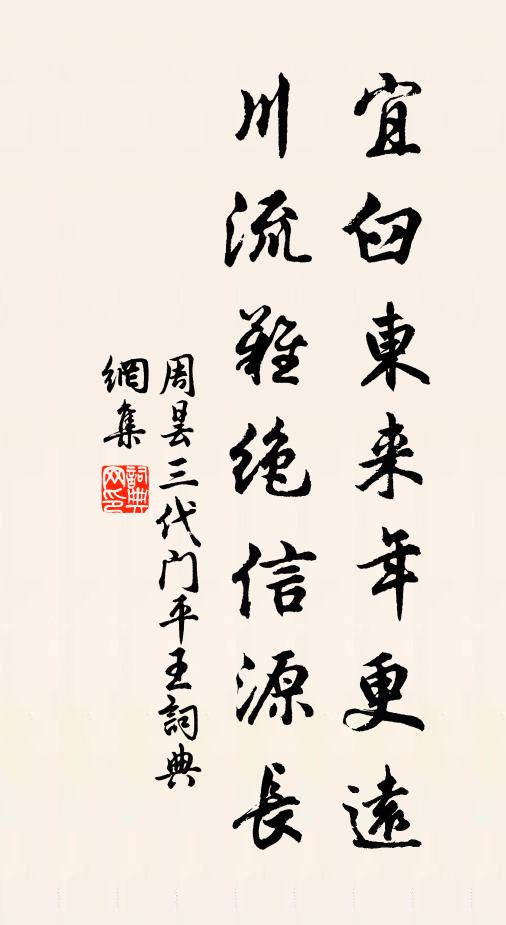 宜臼東来年更遠
川流難絶信源長
周曇三代门平王詞典
網集
詞典网印